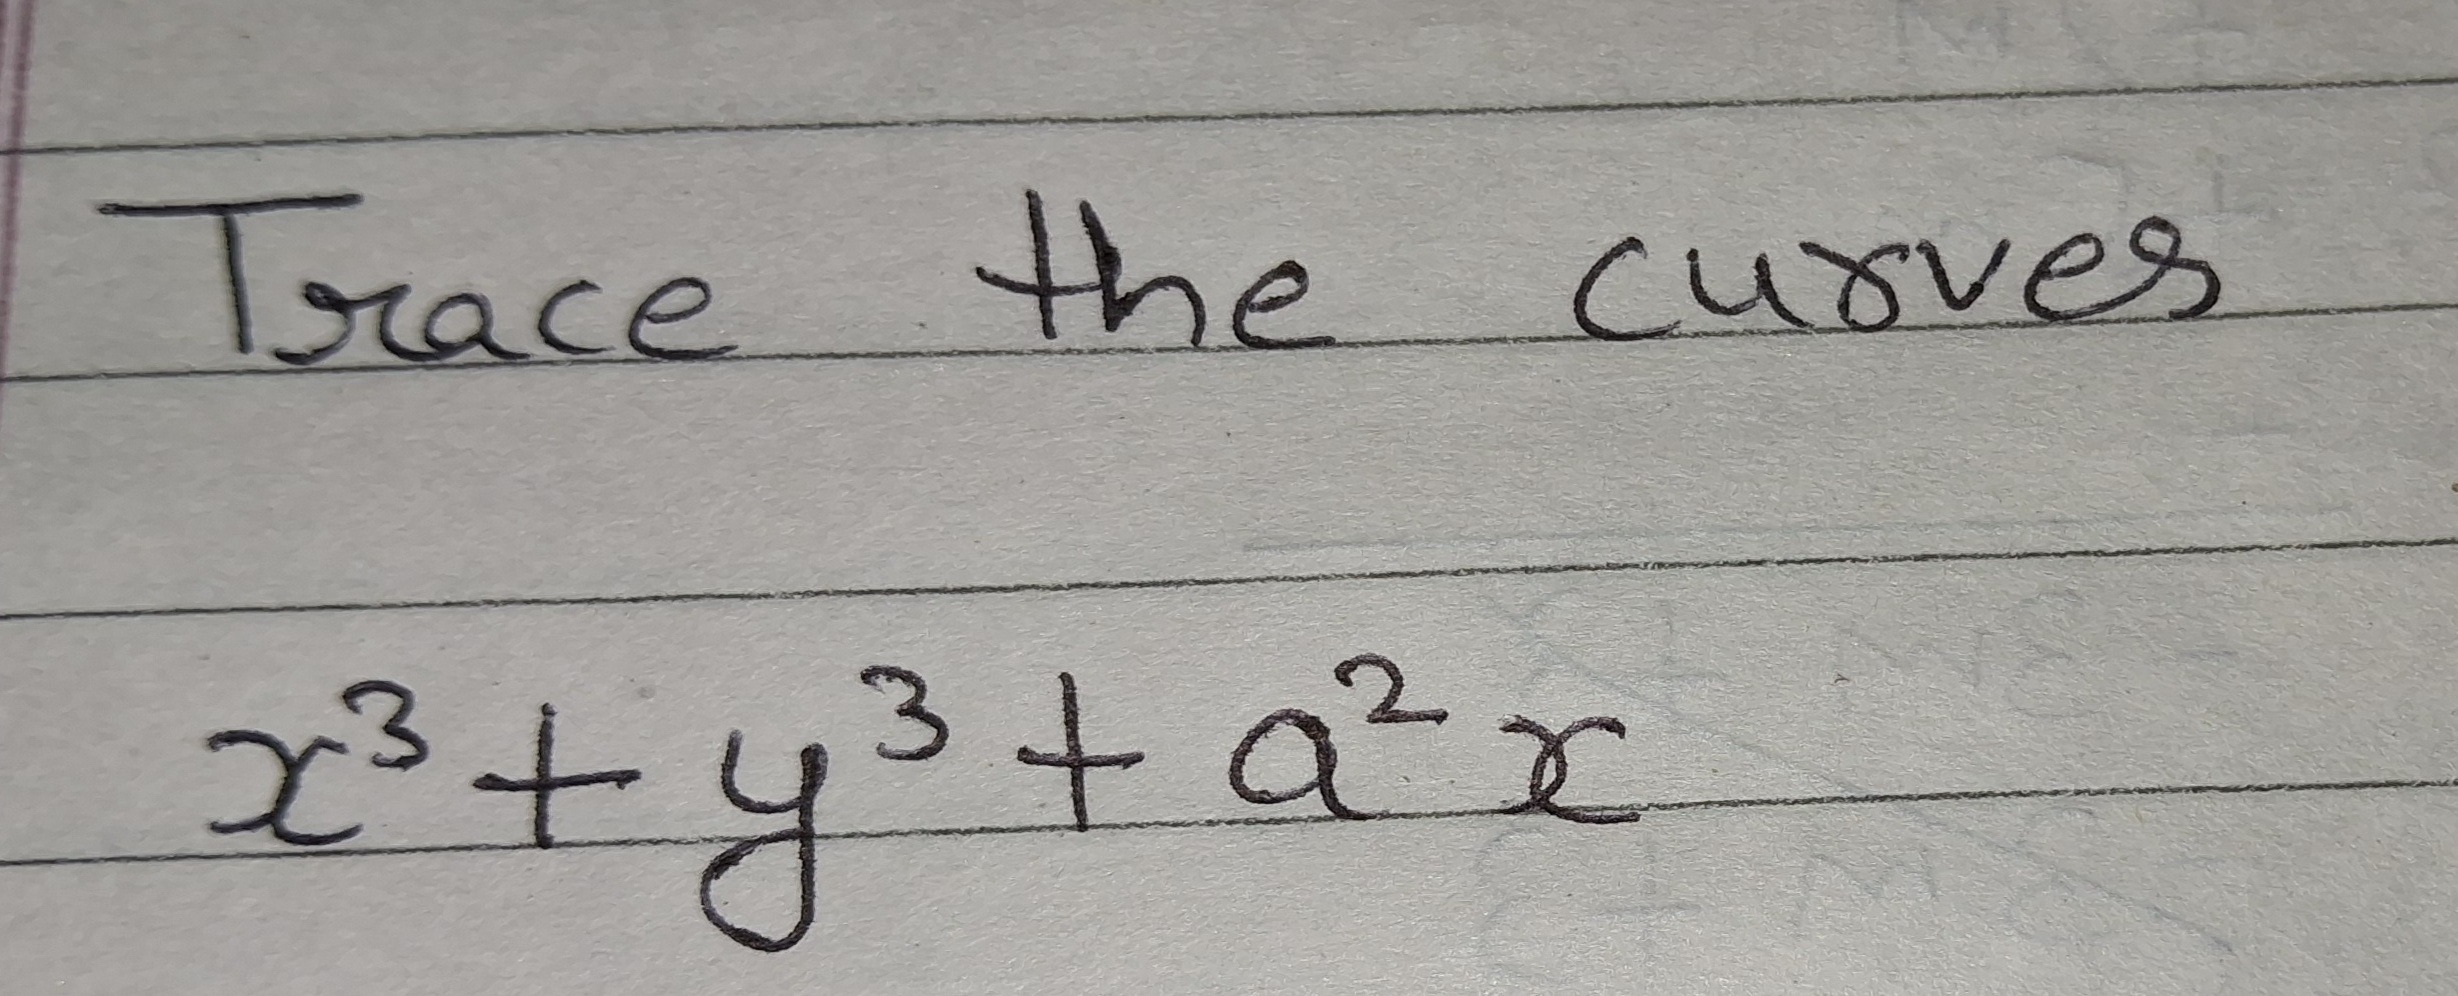 Trace the curves
x³ + y³ + a² x